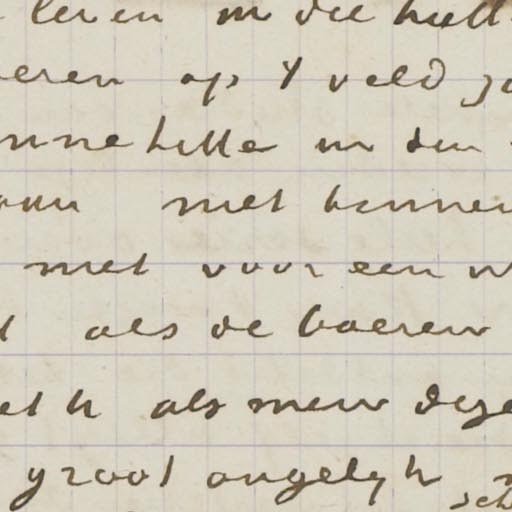 leven in die hutt
eren op 't veld
nnehitte in den
met binnen
met voor een w
als de boeren
als men deze
groot ongelyk
sch